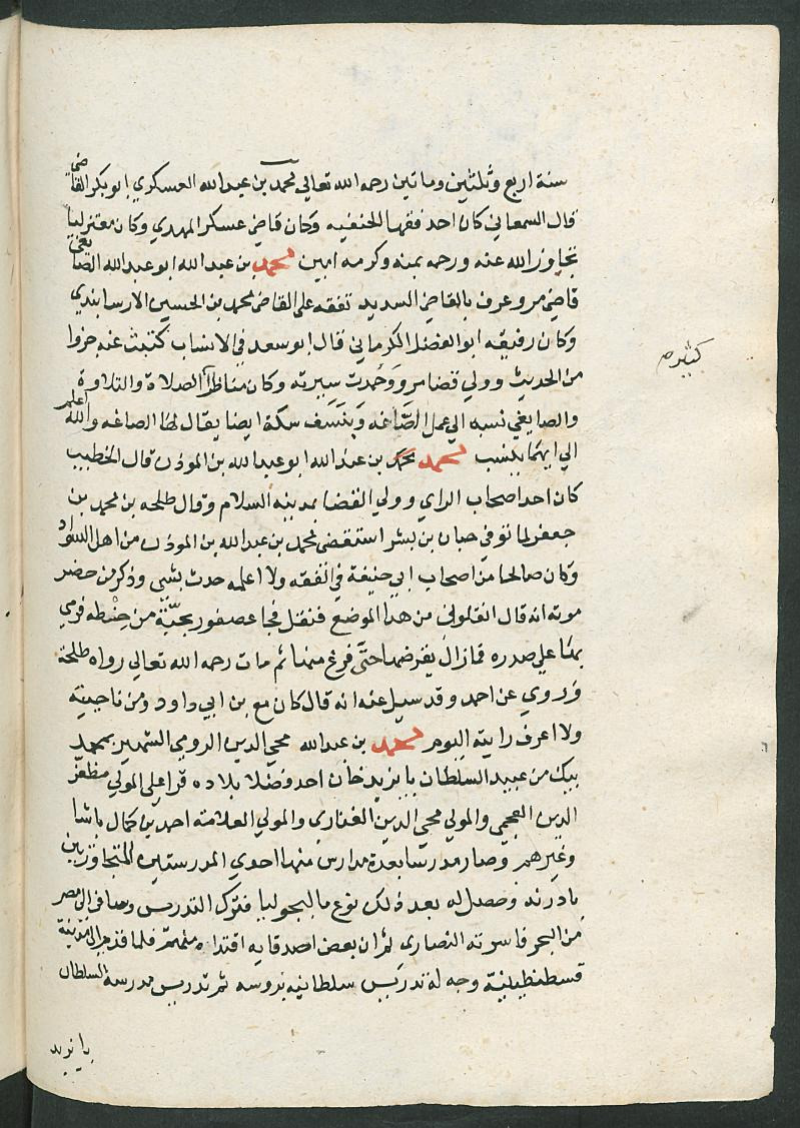 سنة اربع وثلثين وماتين رحمه الله تعالي محمد بن عبد الله العسكري ابو بكر القاضي
قال السمعاني كان احد فقها الحنفيه وكان قاضي عسكر المهدي وكان معتزليا
تجاوز الله عنه ورحمه بمنه وكرمه امين محمد بن عبد الله ابو عبد الله الصايغي
قاضي مرو عرف بالقاضي السديد تفقه علي القاضي محمد بن الحسين الارسابندي
وكان رفيقه ابو الفضل الكرماني قال ابو سعد في الانساب كتبت عنه جزوا
كثيره
من الحديث وولي قضا مرو وحُدت سيرته وكان مناظرا الصلاة والتلاوة
والصايغي نسبه الي عمل الصَّاغه وبنَسَف سكة ايضا يقال لها الصاغه والله اعلم
الي ايهما ينسب محمد محمد بن عبد الله ابو عبد الله بن الموذن قال الخطيب
كان احد اصحاب الراي وولي القضا بمدينه السلام وقال طلحه بن محمد بن
جعفر لما توفي حبان بن بشر استقضي محمد بن عبد الله بن الموذن من اهل السواد
وكان صالحا من اصحاب ابي حنيفة في الفقه ولا اعلمه حدث بشي وذكر من حضر
موته انه قال انقلوني من هذا الموضع فنقل فجا عصفور بحبَّة من حِنْطه فرمي
بها علي صدره فما زال يقرضها حتَّي فرغ منها ثم مات رحمه الله تعالي رواه طلحة
وروي عن احمد وقد سيل عنه انه قال كان مع بن ابي داود ومن ناحيته
ولا اعرف رايه اليوم محمد بن عبد الله محيي الدين الرومي الشهير بمحمد
بيك من عبيد السلطان بايزيد خان احد فضلا بلاده قرا علي المولي مظفر
الدين العجمي والمولي محيي الدين الفناري والمولي العلامته احمد بن كمال باشا
وغيرهم وصار مدرسا بعدة مدارس منها احدي المدرستين المتجاورتين
بادرنه وحصل له بعد ذلك نوع ماليخوليا فترك التدريس وسافر الي مصر
من البحر فاسرته النصاري ثم ان بعض اصدقايه افتداه منهم فلما قدم الي مدينة
قسطنطينية وجه له تدريس سلطانيه بروسه ثم تدريس مدرسة السلطان
بايزيد